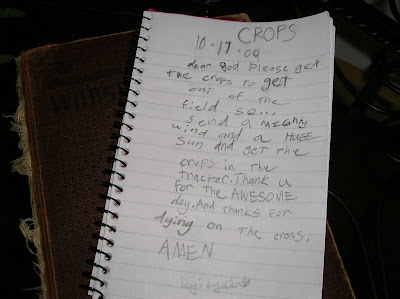 CROPS
10-17-09
dear God Please get
the crops to get
out of the
field so...
send a mighty
wind and a HUGE
Sun and get the
crops in the
tractor. Thank u
for the AWESOME
day. And thanks for
dying on the cross,
AMEN